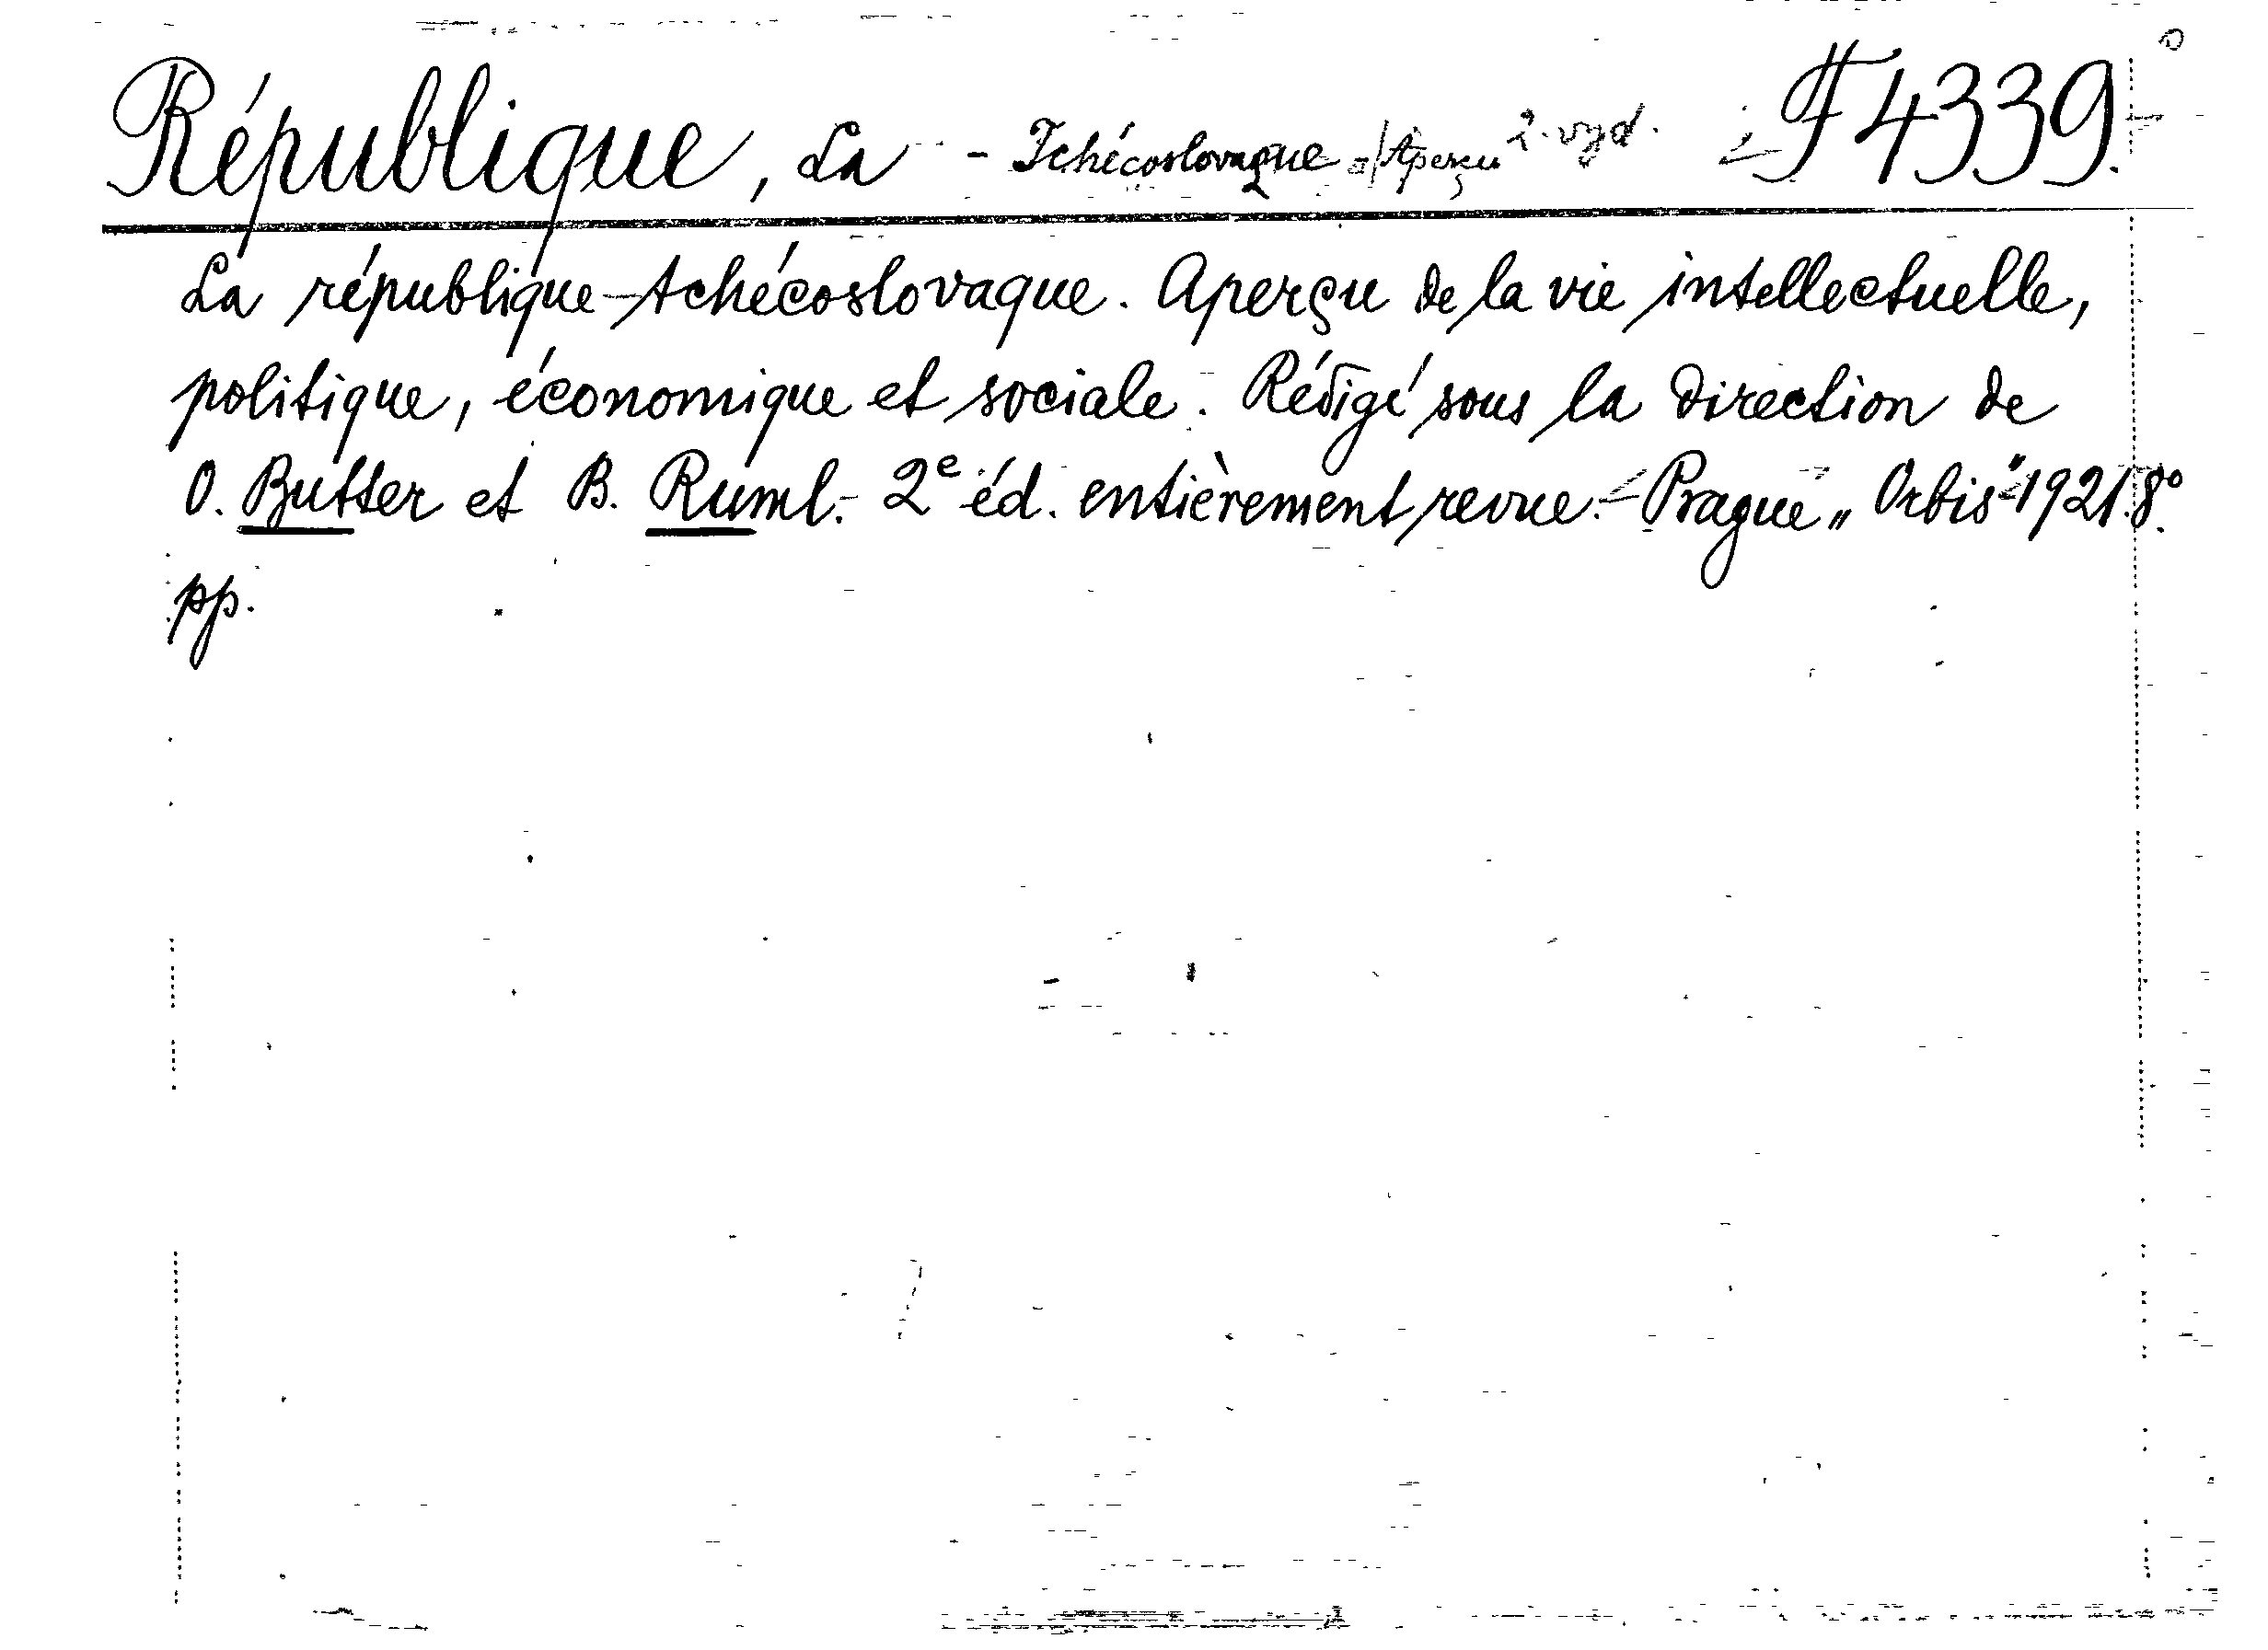 République, La - Tchécoslovaque Aperçu 2. vyd. F 4339.
La république-tchécoslovaque. Aperçu de la vie intellectuelle,
politique, économique et sociale. Rédigé sous la direction de
O. Butter et B. Ruml.- 2e éd. entièrement revue.- Prague „Orbis" 1921. 8°.
pp.